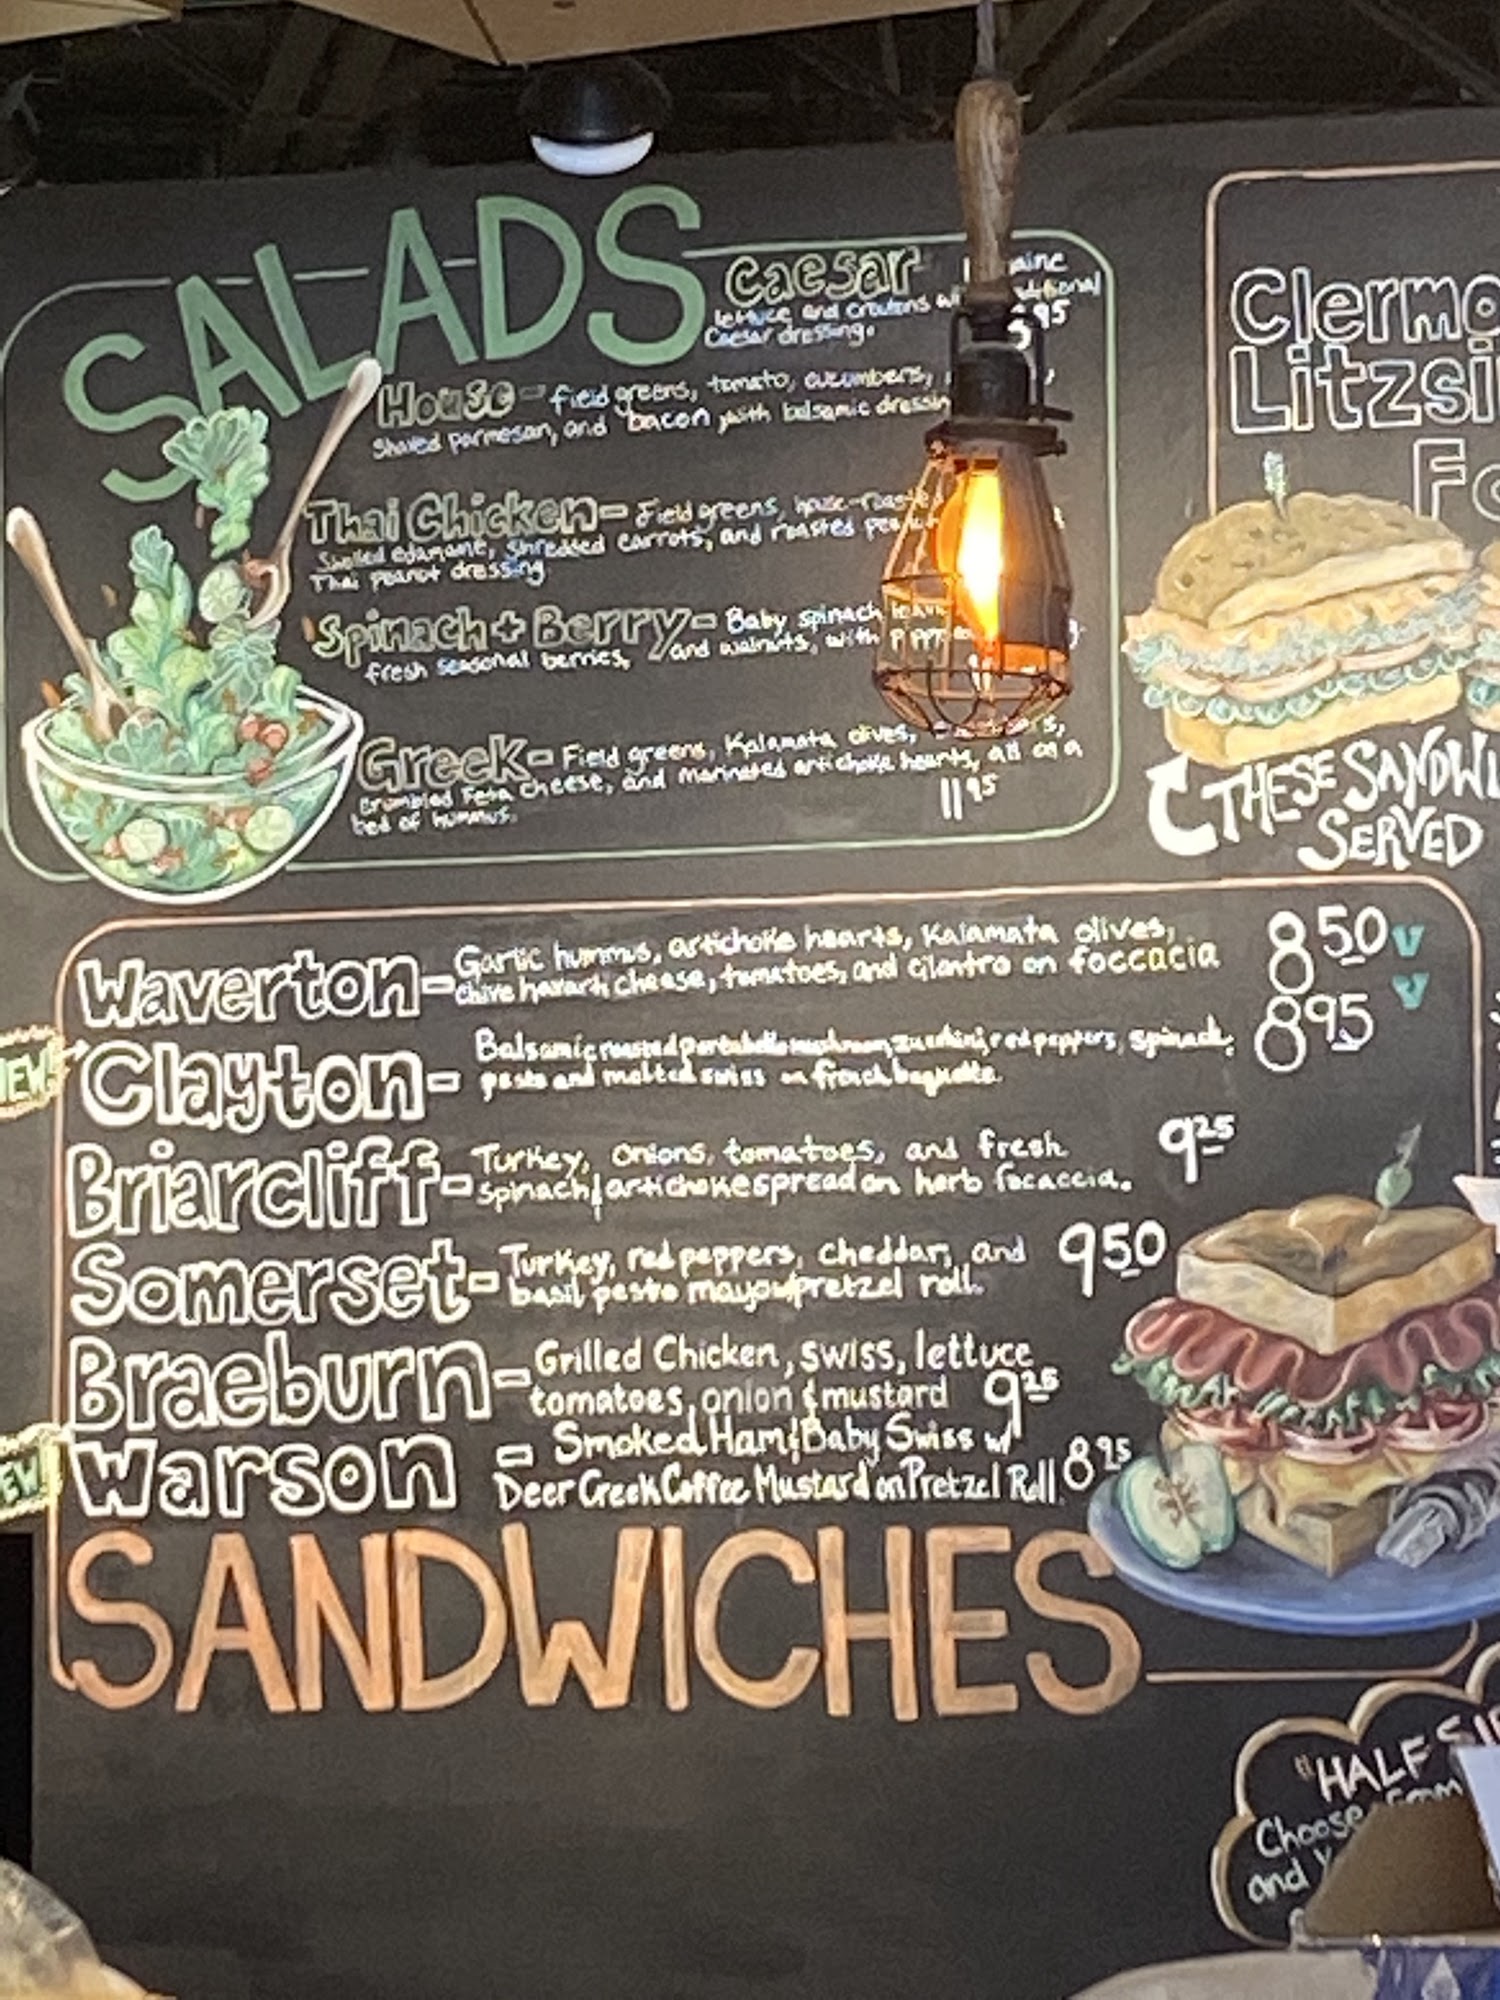 SALADS
Caesar
lettuce and croutons
Caesar dressing.
95
House - field greens, tomato, cucumbers,
Shaved parmesan, and bacon with balsamic
Thai Chicken - Field greens,
Shelled edamame, shredded carrots, and roasted
Thai peanut dressing
Spinach + Berry - Baby spinach
fresh seasonal berries, and walnuts, with
Greek - Field greens, Kalamata olives,
crumbled Feta cheese, and marinated artichoke hearts, all on a
bed of hummus.
11 95
THESE
SERVED
Waverton - Garlic hummus, artichoke hearts, Kalamata olives, 8 50 V
chive havarti cheese, tomatoes, and cilantro on foccacia
Clayton - Balsamic roasted portabello mushroom, zucchini, red peppers, spinach, 8 95 V
pesto and melted swiss on french baguette.
Briarcliff - Turkey, onions, tomatoes, and fresh 9 25
spinach & artichoke spread on herb focaccia.
Somerset - Turkey, red peppers, cheddar, and 9 50
basil pesto mayo pretzel roll.
Braeburn - Grilled Chicken, swiss, lettuce
tomatoes, onion & mustard 9 25
NEW
Warson - Smoked Ham & Baby Swiss w/
Deer Creek Coffee Mustard on Pretzel Roll 8 95
SANDWICHES
"HALF
Choose From
and